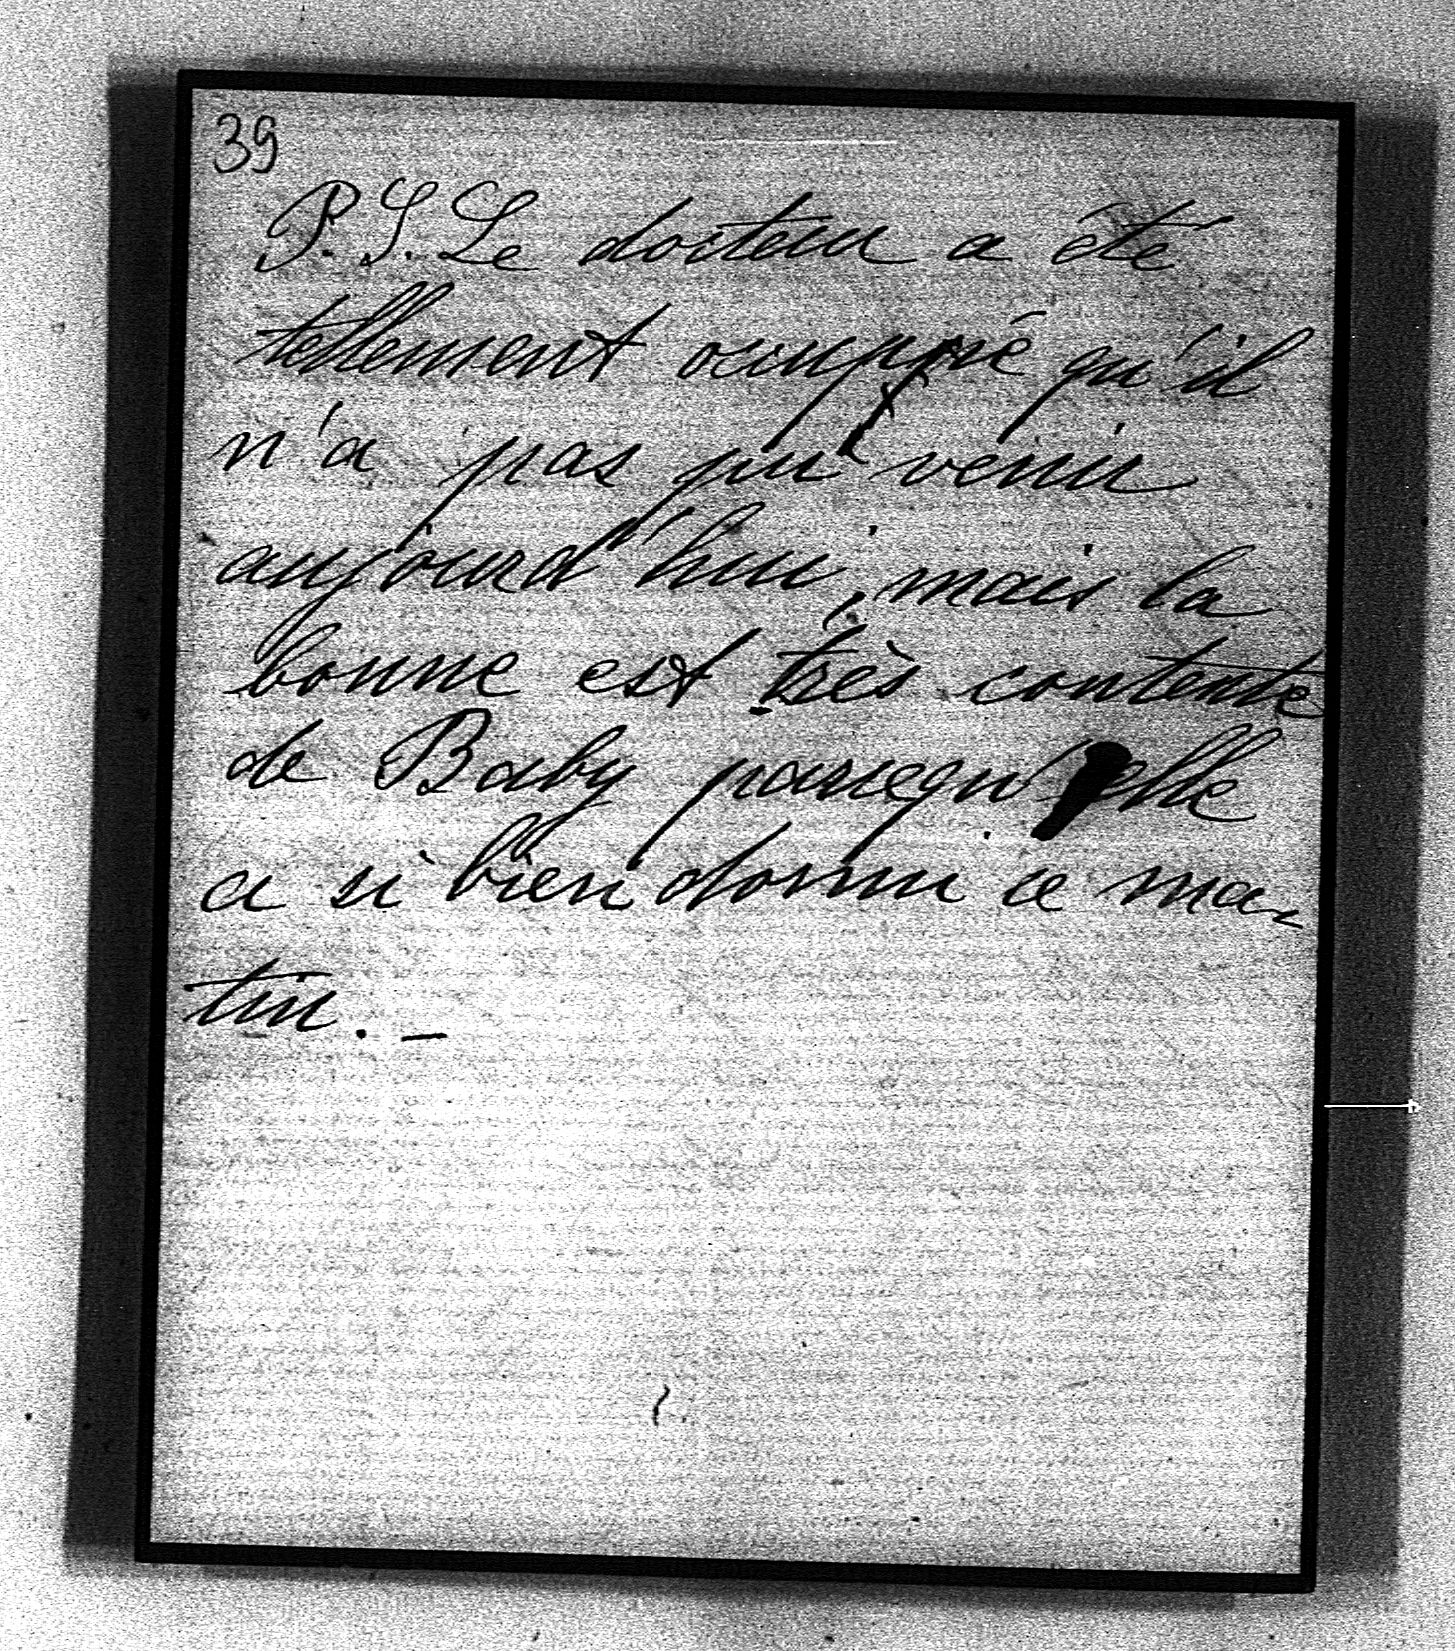 39
P.S. Le docteur a été
tellement occuppé qu'il
n'a pas pu venir
aujourd'hui, mais la
bonne est très contente
de Baby parcequ'elle
a si bien dormi ce ma-
tin. –